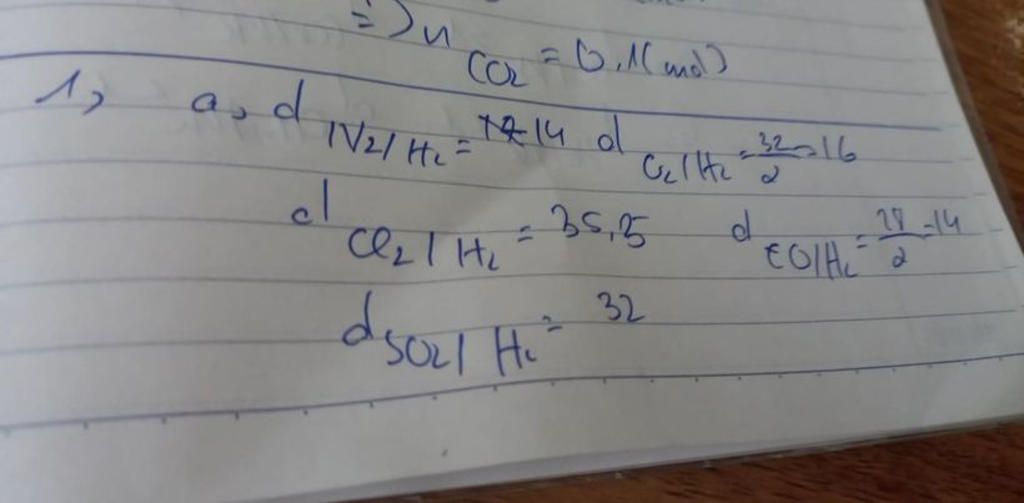 => n CO2 = 0,1 (mol)
1, a, d N2/H2 = 14 d O2/H2 = 32/2 = 16
d Cl2/H2 = 35,5 d CO/H2 = 28/2 = 14
d SO2/H2 = 32